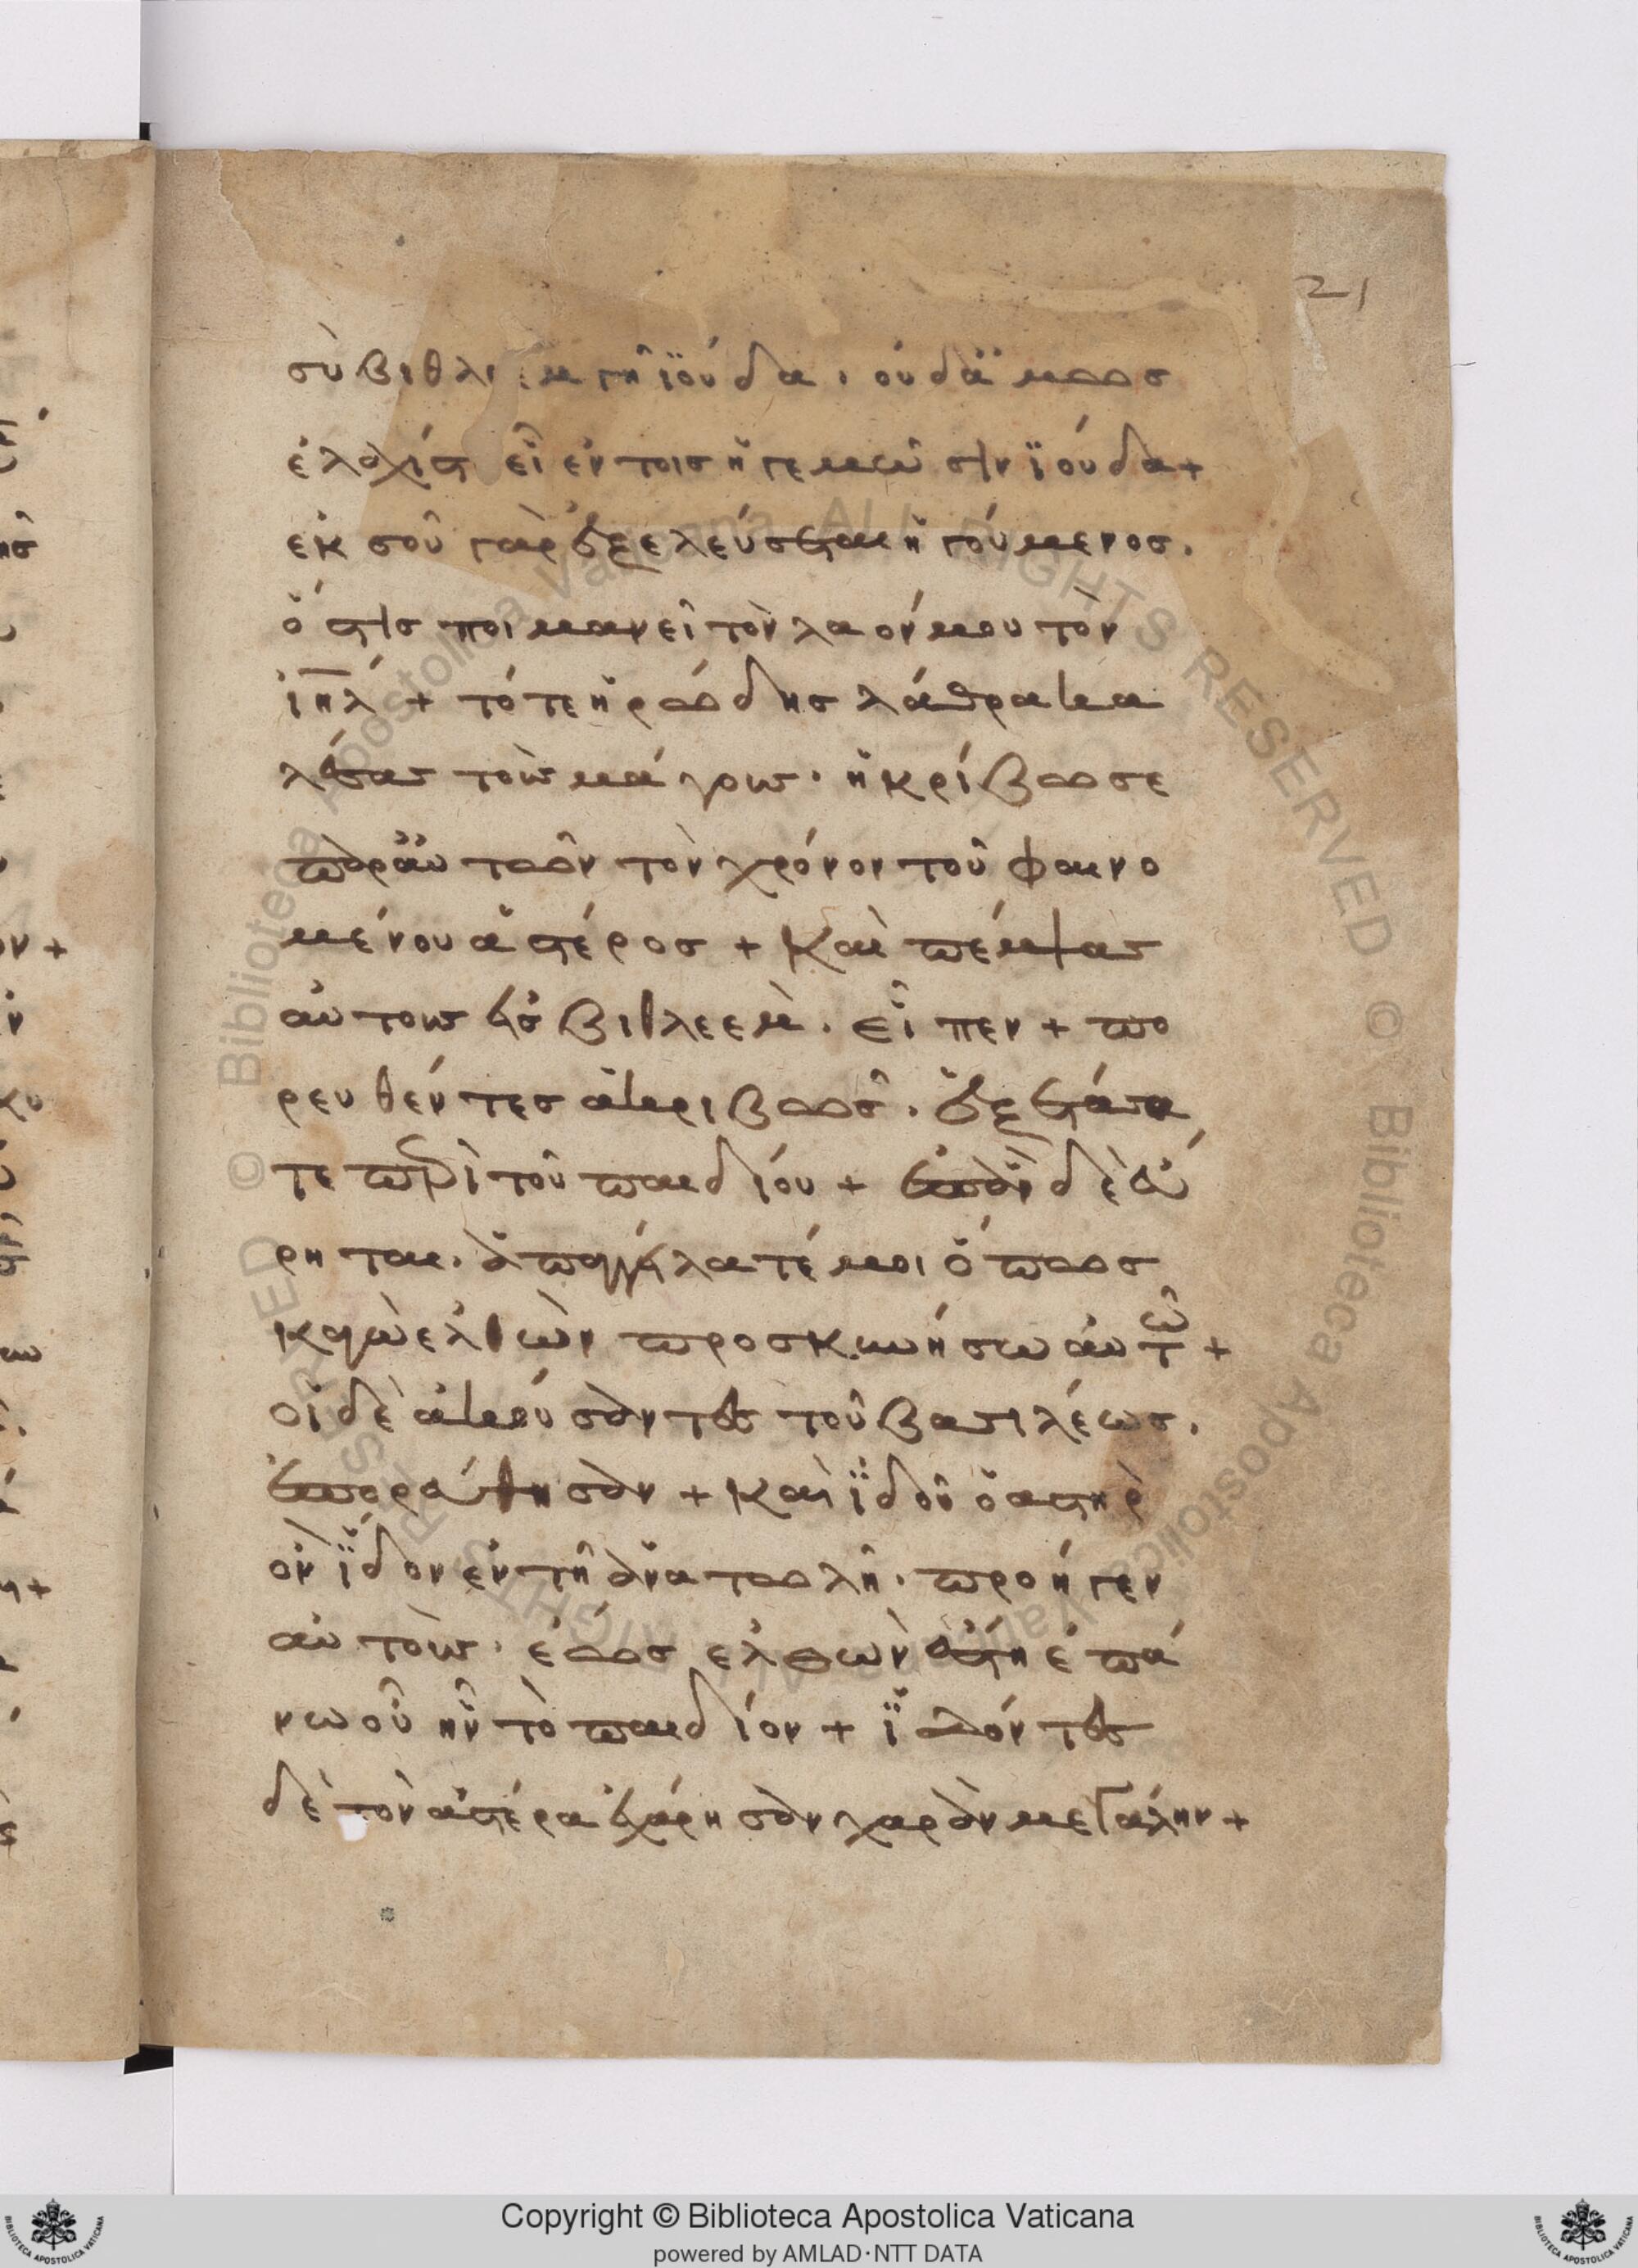 21
σὺ βιθλεὲμ γῆ ϊούδα · οὐδαμῶς
ἐλαχίστη εἶ ἐν τοῖς ἡγεμῶσιν ϊούδα +
ἐκ σοῦ γὰρ ἐξελεύσεται ἡγούμενος ·
ὅστις ποιμανεῖ τὸν λαόν μου τὸν
ἰηλ + τότε ἡρώδης λάθρα κα
λέσας τοὺς μάγους · ἠκρίβωσε
παρ' αὐτῶν τὸν χρόνον τοῦ φαινο
μένου ἀστέρος + Καὶ πέμψας
αὐτοὺς εἰς βιθλεὲμ · εἶπεν + πο
ρευθέντες ἀκριβῶς · ἐξετάσα
τε περὶ τοῦ παιδίου + ἐπὰν δὲ εὕ
ρηται · ἀπαγγείλατέ μοι ὅπως
κἀγὼ ἐλθὼν προσκυνήσω αὐτῶ +
οἱ δὲ ἀκούσαντες τοῦ βασιλέως ·
ἐπορεύθησαν + Καὶ ϊδοῦ ὁ ἀστὴρ
ὃν ϊδον ἐν τῆ ἀνατωλῆ · προήγεν
αὐτοὺς · ἕως ἐλθὼν ἔστη ἐπά
νω οὗ ἦν τὸ παιδίον + ϊδόντες
δὲ τὸν ἀστέρα ἐχάρησαν χαρὰν μεγάλην +
© Biblioteca Apostolica Vaticana ALL RIGHTS RESERVED © Biblioteca Apostolica Vaticana ALL RIGHTS RESERVED
Copyright © Biblioteca Apostolica Vaticana
powered by AMLAD·NTT DATA